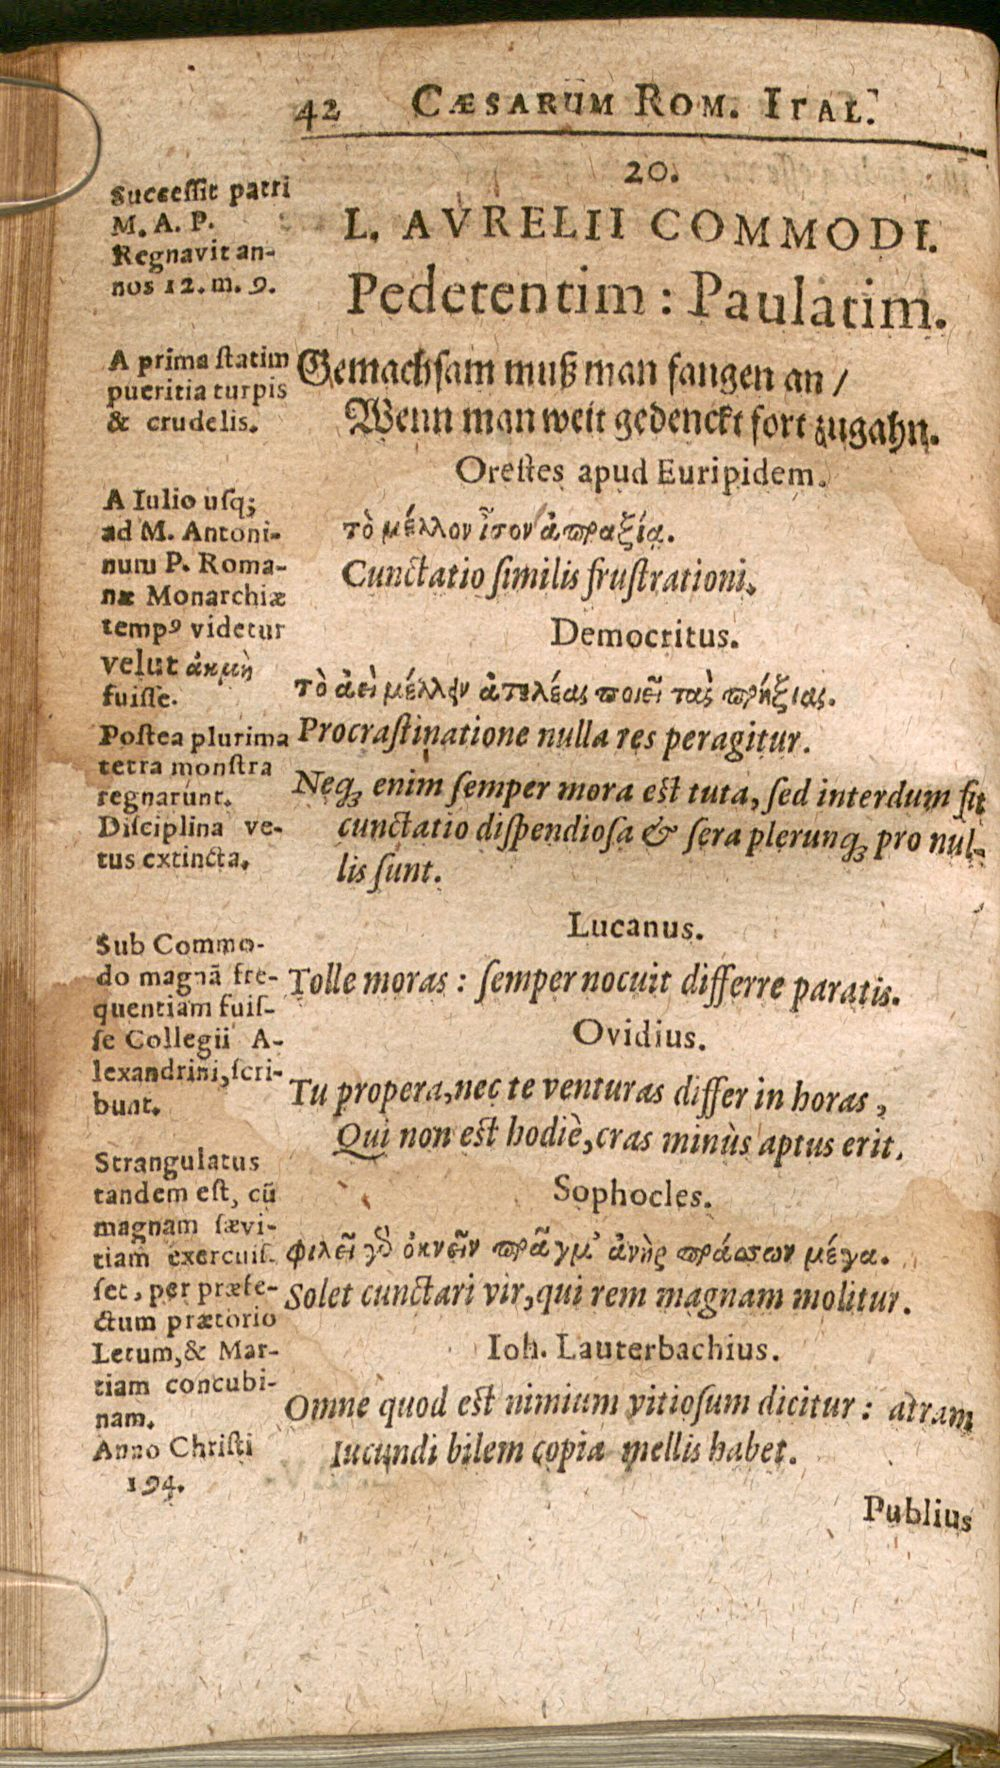 42 CÆSARUM ROM. ITAL.
20.
L. AVRELII COMMODI.
Pedetentim : Paulatim.
Gemachsam muß man fangen an /
Wenn man weit gedenckt fort zugahn.
Orestes apud Euripidem.
τὸ μέλλον ἶσον ἀπραξίᾳ.
Cunctatio similis frustrationi.
Democritus.
τὸ ἀεὶ μέλλειν ἀτελέας ποιεῖ τὰς πρήξιας.
Procrastinatione nulla res peragitur.
Neq; enim semper mora est tuta, sed interdum fit
cunctatio dispendiosa & sera plerunq; pro nul-
lis sunt.
Lucanus.
Tolle moras : semper nocuit differre paratis.
Ovidius.
Tu propera, nec te venturas differ in horas,
Qui non est hodiè, cras minùs aptus erit.
Sophocles.
φιλεῖ γὸ ὀκνεῖν πρᾶγμ' ἀνὴρ πράσσων μέγα.
Solet cunctari vir, qui rem magnam molitur.
Ioh. Lauterbachius.
Omne quod est nimium vitiosum dicitur : atram
Iucundi bilem copia mellis habet.
Publius
Successit patri
M. A. P.
Regnavit an-
nos 12. m. 9.
A prima statim
pueritia turpis
& crudelis.
A Iulio usq;
ad M. Antoni-
num P. Roma-
næ Monarchiæ
tempꝰ videtur
velut ἀκμὴ
fuisse.
Postea plurima
tetra monstra
regnarunt.
Disciplina ve-
tus extincta.
Sub Commo-
do magnã fre-
quentiam fuis-
se Collegii A-
lexandrini, scri-
bunt.
Strangulatus
tandem est, cũ
magnam sævi-
tiam exercuis-
set, per præfe-
ctum prætorio
Letum, & Mar-
tiam concubi-
nam.
Anno Christi
194.